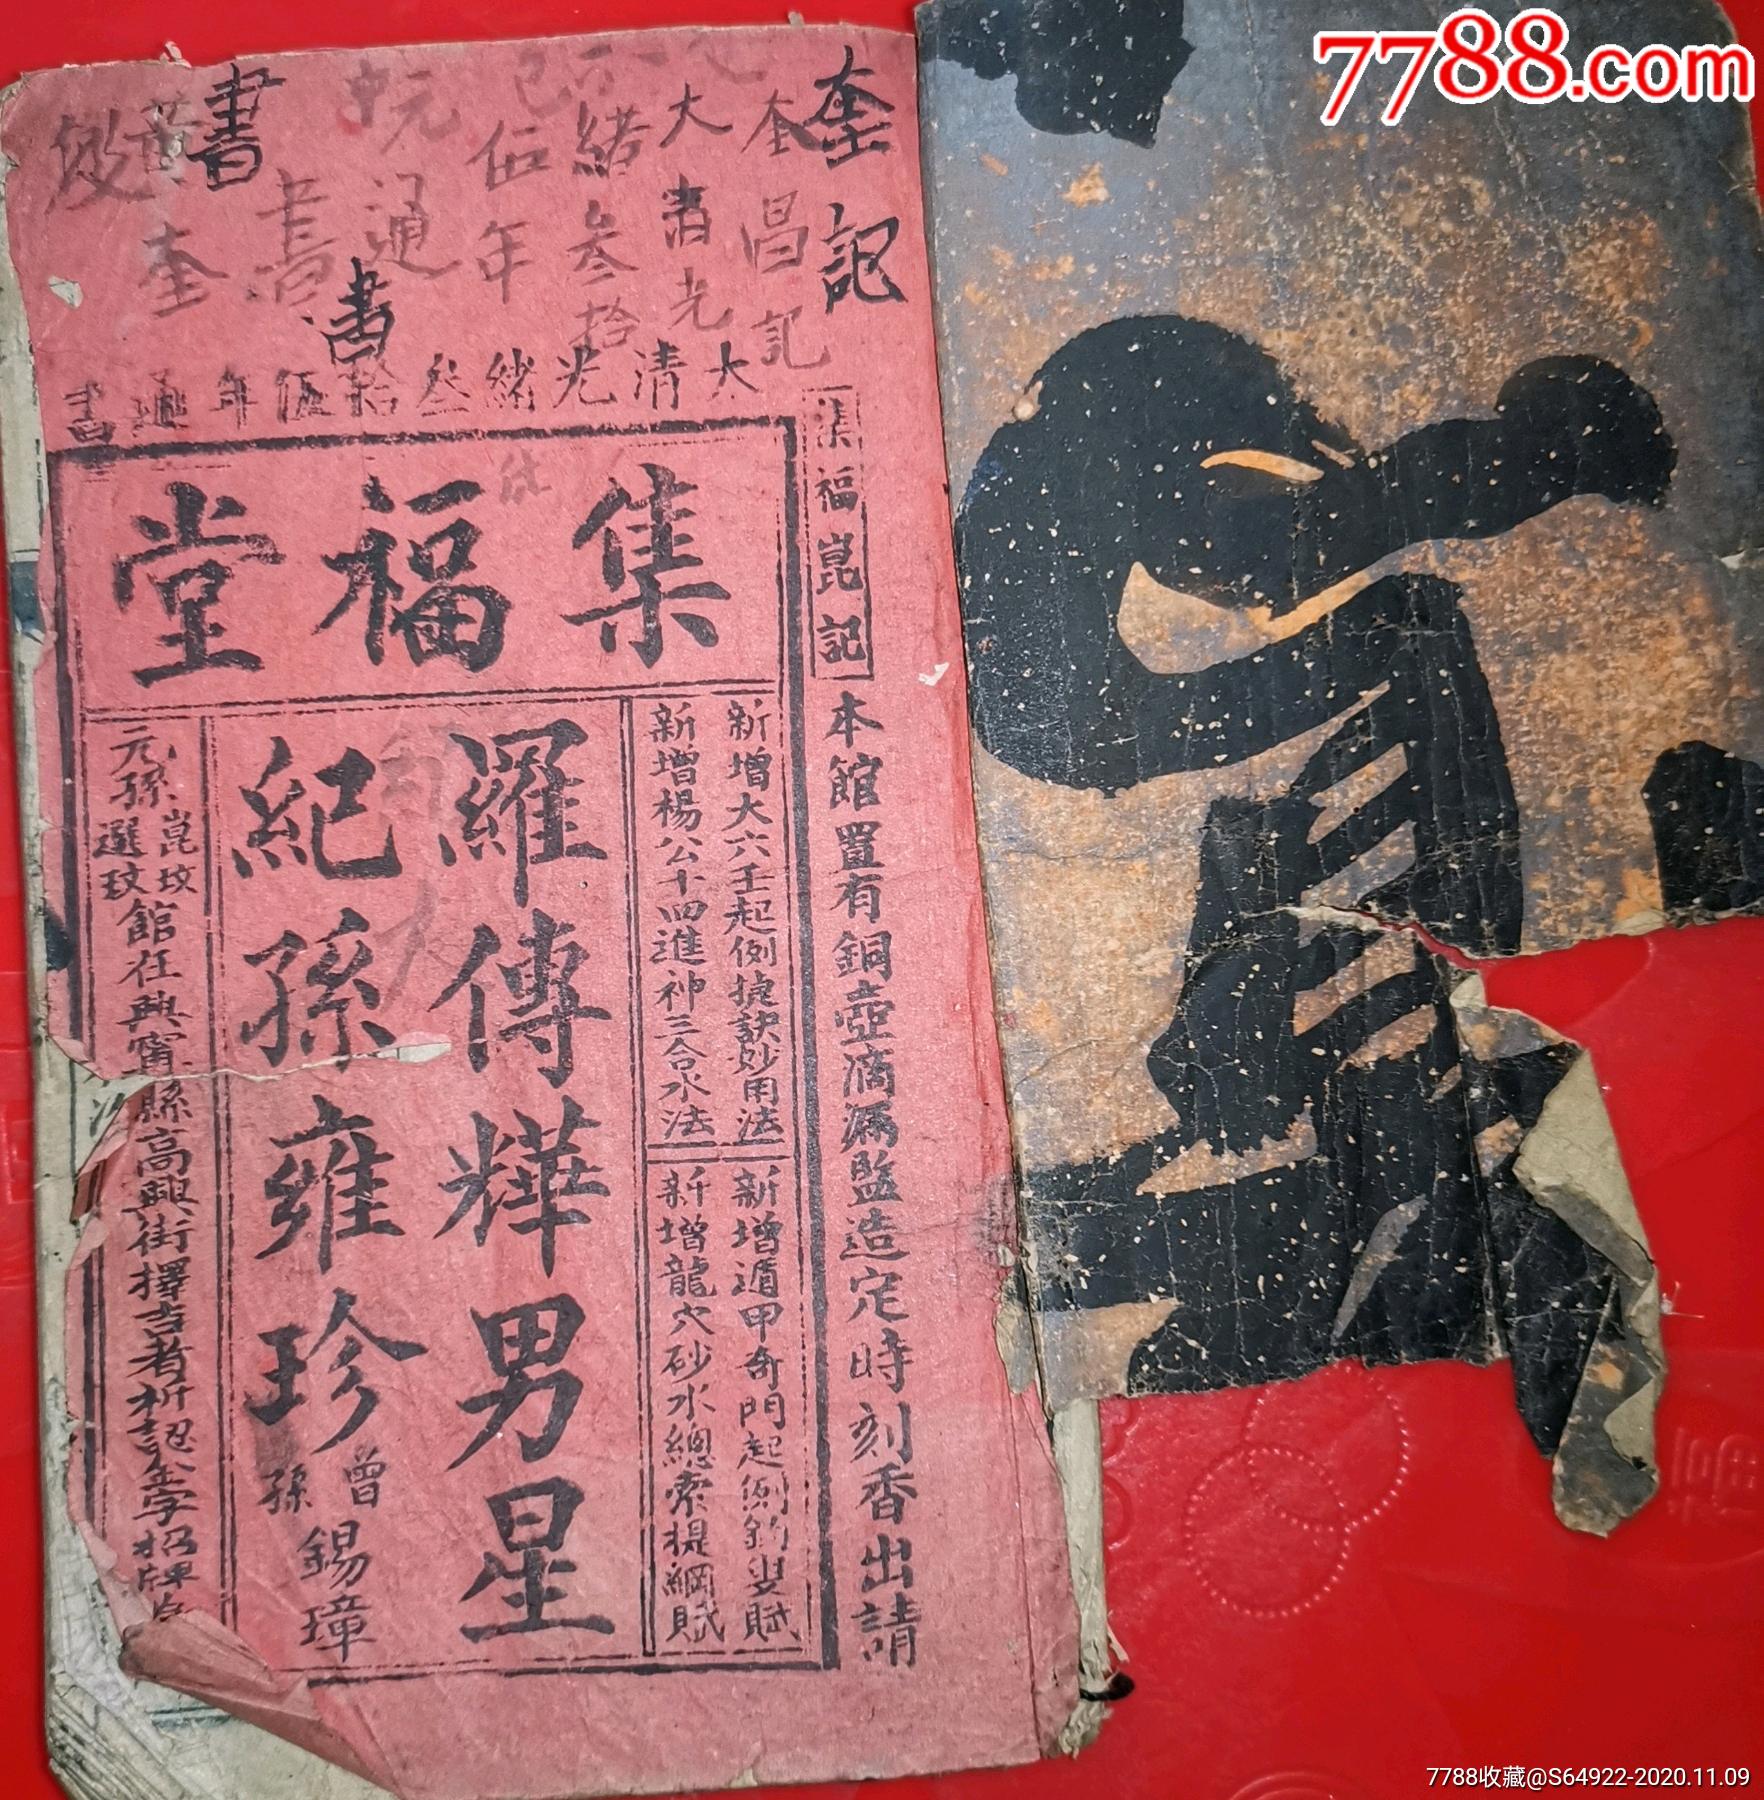 7788.com
奎記
奎昌記
大清光
緒叁拾
伍年
通
書
黃奎
書
書
大清光緒叁拾伍年通書
集福崑記
本館置有銅壺滴漏監造定時刻香出請
集福堂
新增大六壬起例捷訣妙用法
新增楊公十四進神三合水法
新增遁甲奇門起例釣叟賦
新增龍穴砂水總索提綱賦
羅傳燁男星
紀孫雍珍
曾孫錫璋
元孫崑玟
選玟
館在興寧縣高興街擇吉者祈認金字招牌為
7788收藏@S64922-2020.11.09